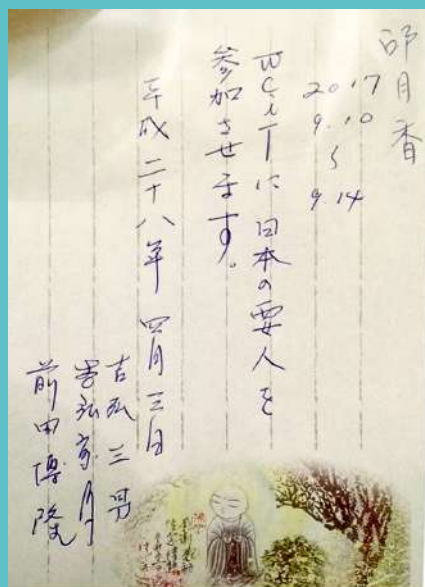 邱月香
2017
9.10
〜
9.14
WCiTに日本の要人を
参加させます。
平成二十八年 四月三日
前田博隆